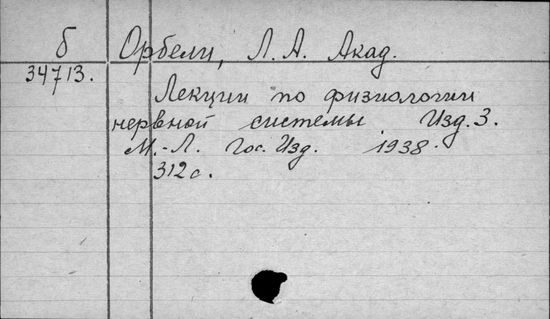 б Орбели, Л. А. Акад.
34713.
Лекции по физиологии
нервной системы. Изд. 3.
М.-Л. Гос. Изд. 1938.
312 с.